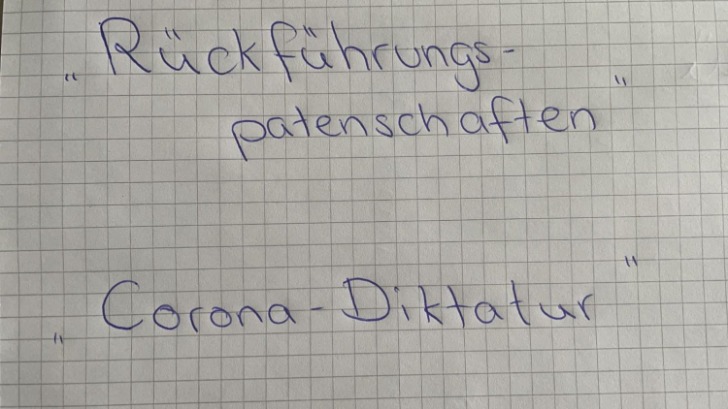 „Rückführungs-
patenschaften"
„Corona-Diktatur"